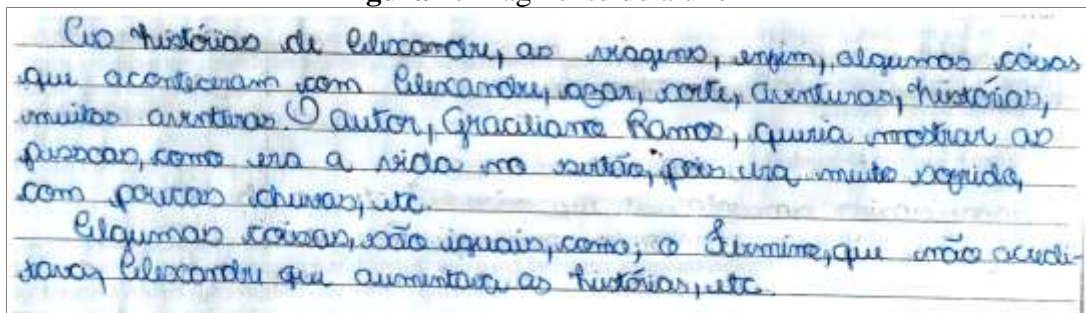 As histórias de Alexandre, as viagens, enfim, algumas coisas
que aconteceram com Alexandre, azar, sorte, aventuras, histórias,
muitas aventuras. O autor, Graciliano Ramos, queria mostrar as
pessoas, como era a vida no sertão, pois era muito sofrida,
com poucas chuvas, etc.
Algumas coisas, são iguais, como; o Firmino, que não acredi-
tava, Alexandre que aumentava as histórias, etc.